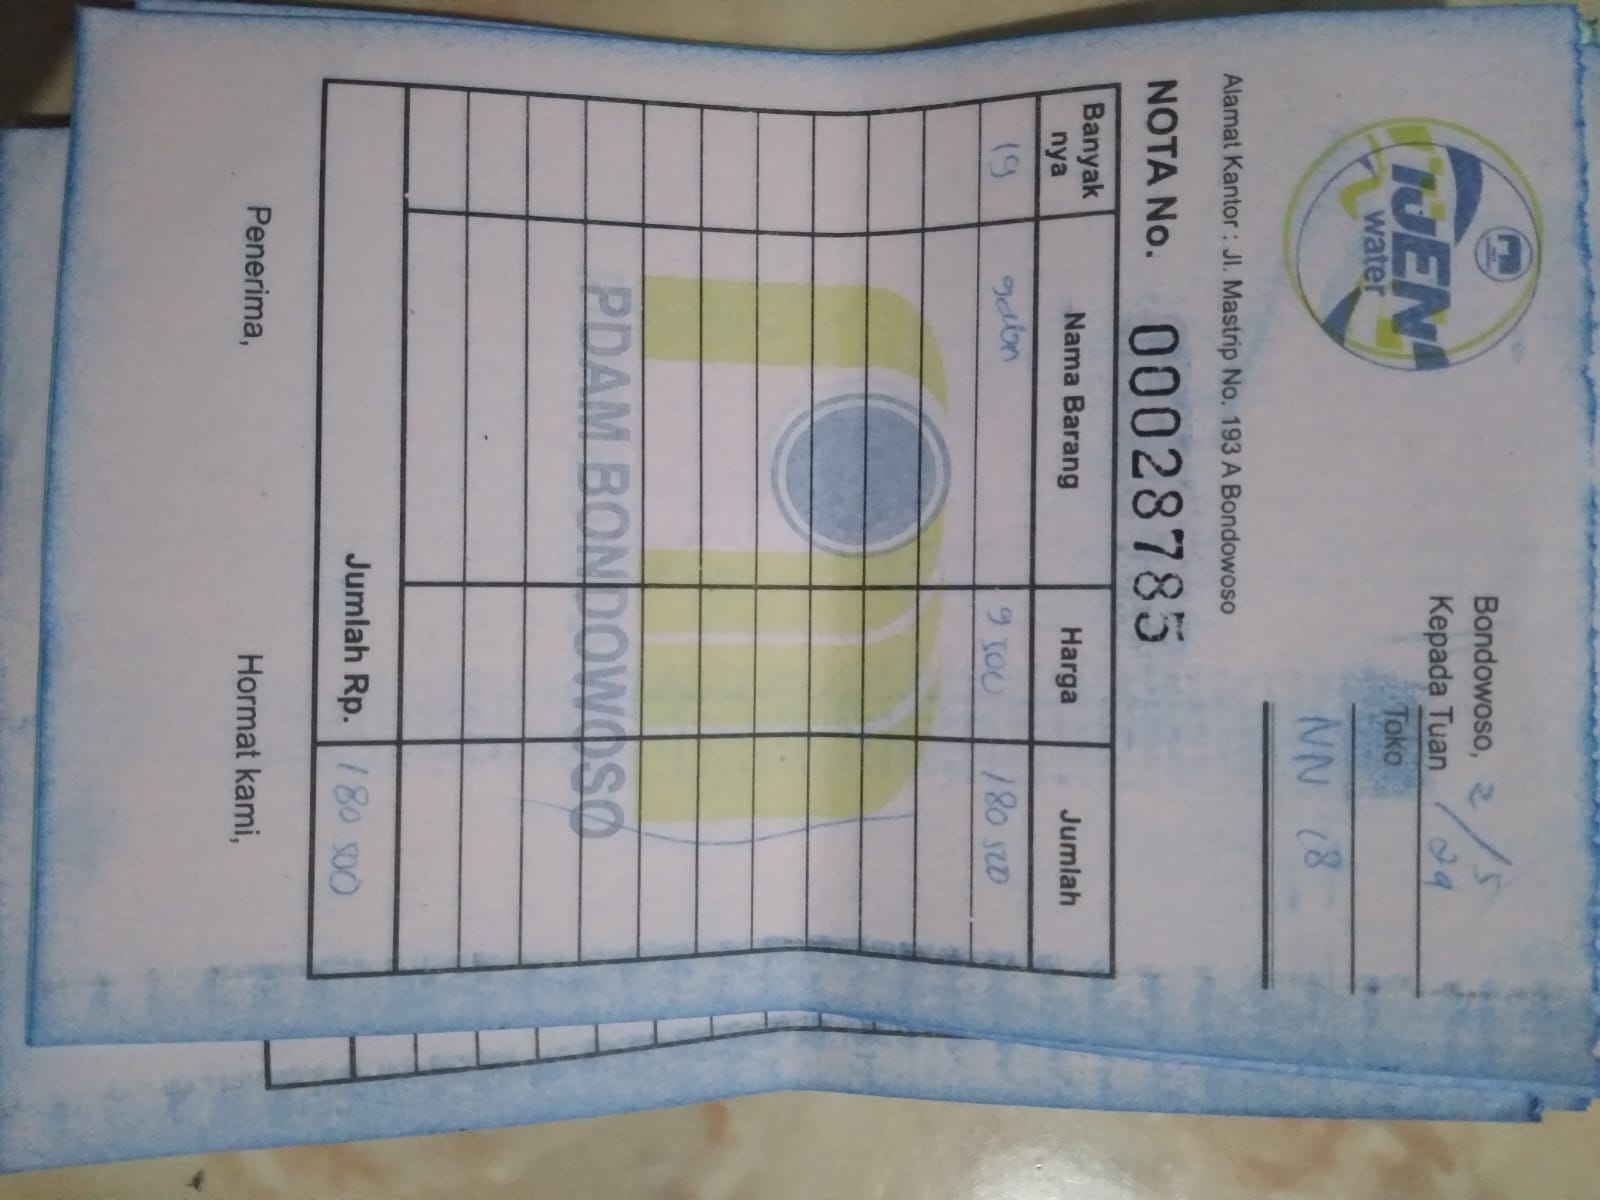 IJEN
water
Bondowoso, 2/5
Kepada Tuan 24
Toko
NN 18
Alamat Kantor : Jl. Mastrip No. 193 A Bondowoso
NOTA No. 00028785
Banyak nya Nama Barang Harga Jumlah
19 galon 9 500 180 500
PDAM BONDOWOSO
Jumlah Rp. 180 500
Penerima, Hormat kami,